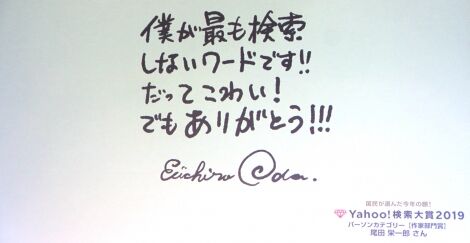 僕が最も検索
しないワードです!!
だってこわい!
でもありがとう!!!
Eiichiro Oda.
国民が選んだ今年の顔!
Yahoo!検索大賞2019
パーソンカテゴリー [作家部門賞]
尾田 栄一郎 さん